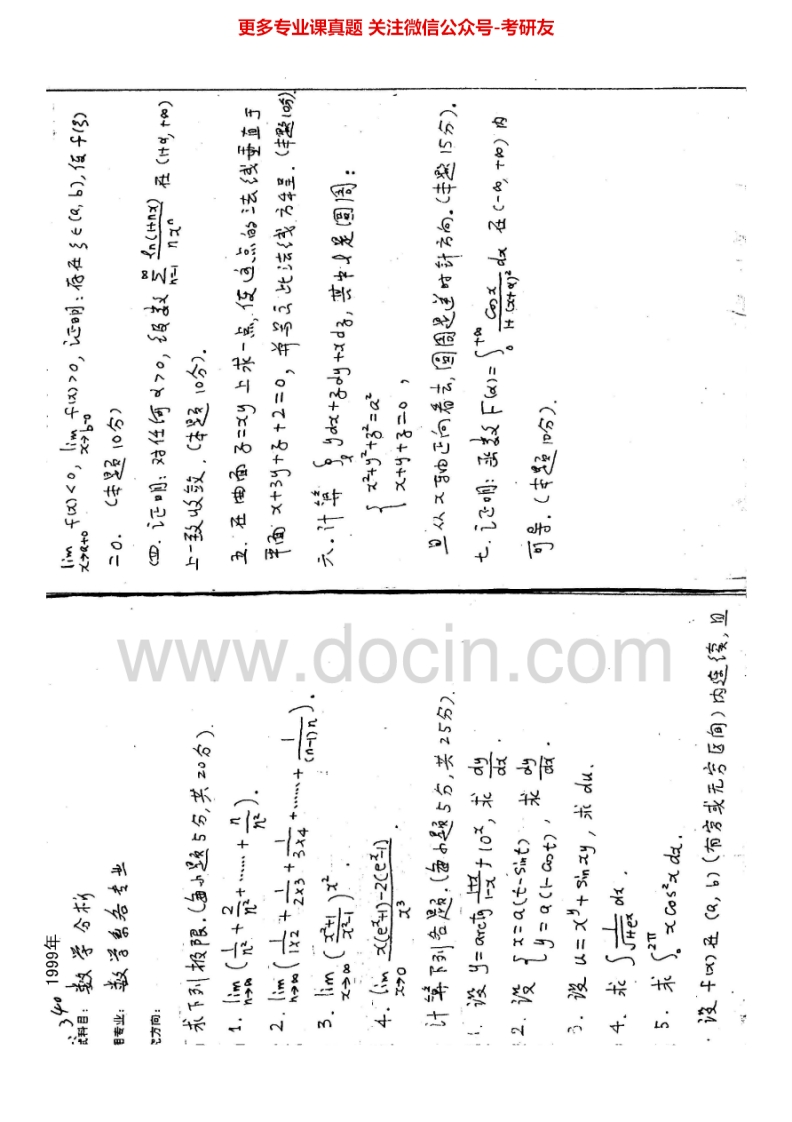 更多专业课真题 关注微信公众号-考研友
1999年
340
试科目: 数学分析
目专业: 数学系各专业
方向:
求下列极限.(每小题5分,共20分).
1. lim n→∞ (1/n² + 2/n² + …… + n/n²).
2. lim n→∞ (1/1×2 + 1/2×3 + 1/3×4 + …… + 1/(n-1)n).
3. lim x→∞ ((x²+1)/(x²-1))^x².
4. lim x→0 (x(eˣ+1)-2(eˣ-1))/x³.
计算下列各题.(每小题5分,共25分).
1. 设 y=arctg (1+x)/(1-x) +10ˣ, 求 dy/dx.
2. 设 { x=a(t-sint) y=a(1-cost), 求 dy/dx.
3. 设 u=x^y+sinxy, 求 du.
4. 求 ∫ 1/√(1+eˣ) dx.
5. 求 ∫₀^2π xcos²x dx.
设 f(x) 在 (a, b) (有穷或无穷区间) 内连续, 且
lim x→a+0 f(x)<0, lim x→b-0 f(x)>0, 证明: 存在 ξ∈(a, b), 使 f(ξ)
=0. (本题10分)
四. 证明: 对任何 α>0, 级数 ∑ n=1 ∞ ln(1+nx)/nxⁿ 在 (1+α, +∞)
上一致收敛. (本题10分).
五. 在曲面 z=xy 上求一点, 使这点的法线垂直于
平面 x+3y+z+2=0, 并写出此法线方程. (本题10分).
六. 计算 ∮l ydx+zdy+xdz, 其中 l 是圆周:
{ x²+y²+z²=a²
x+y+z=0,
且从 x 轴正向看去, 圆周是逆时针方向. (本题15分).
七. 证明: 函数 F(α)=∫₀^+∞ cosx/(1+(x+α)²) dx 在 (-∞, +∞) 内
可导. (本题10分).
www.docin.com